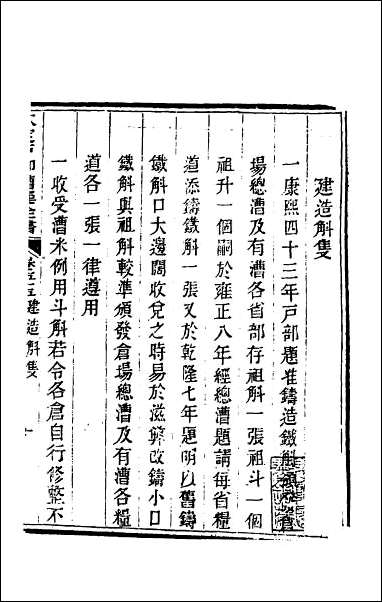 建造斛隻
一康熙四十三年戶部題准鑄造鐵斛頒發倉
場總漕及有漕各省部存祖斛一張祖斗一個
祖升一個嗣於雍正八年經總漕題請每省糧
道添鑄鐵斛一張又於乾隆七年題明以舊鑄
鐵斛口大邊闊收兌之時易於滋弊改鑄小口
鐵斛與祖斛較準頒發倉塲總漕及有漕各糧
道各一張一律遵用
一收受漕米例用斗斛若令各倉自行修整不
漕運全書
建造斛隻